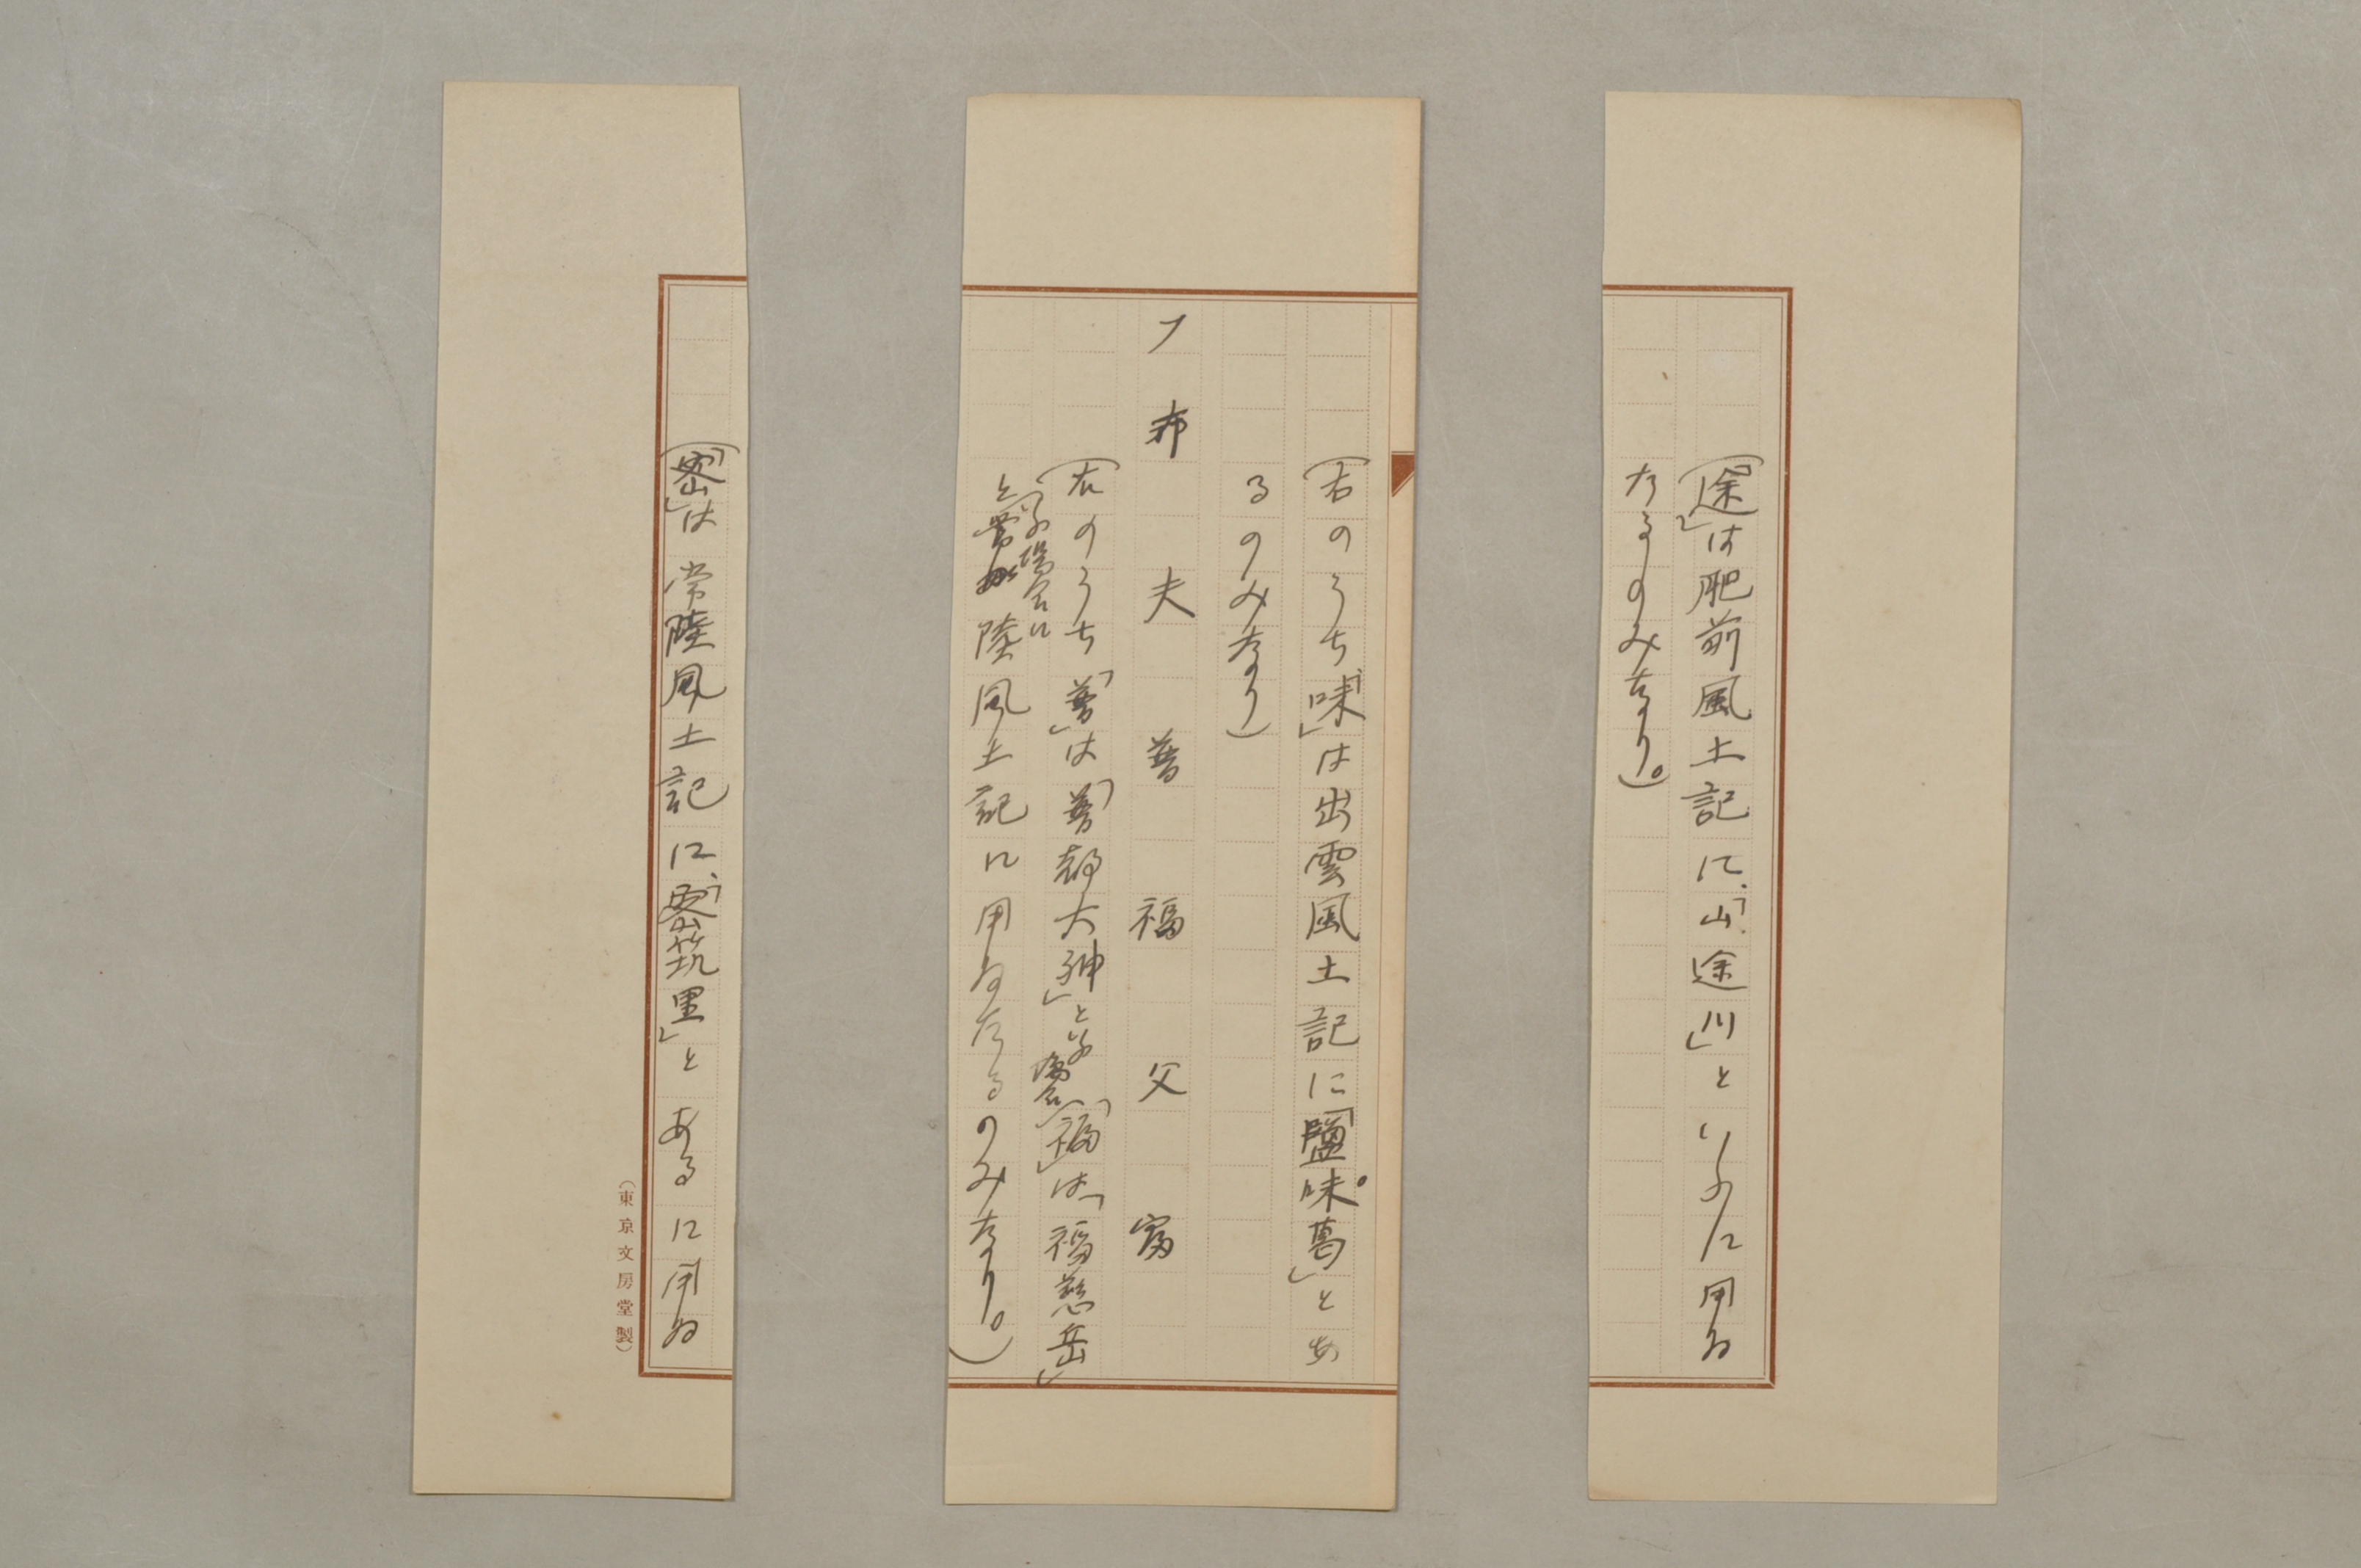 (「途」は肥前風土記に、「山途川」といふに用ゐ
たるのみなり。)
(右のうち「味」は出雲風土記に「鹽味葛」とあ
るのみなり)
フ 布 夫 普 福 父 富
(右のうち「普」は「普都大神」といふ場合に「福」は「福慈岳」
といふ場合に常陸風土記に用ゐたるのみなり。)
(「密」は常陸風土記に、「密筑里」とあるに用ゐ
(東京文房堂製)